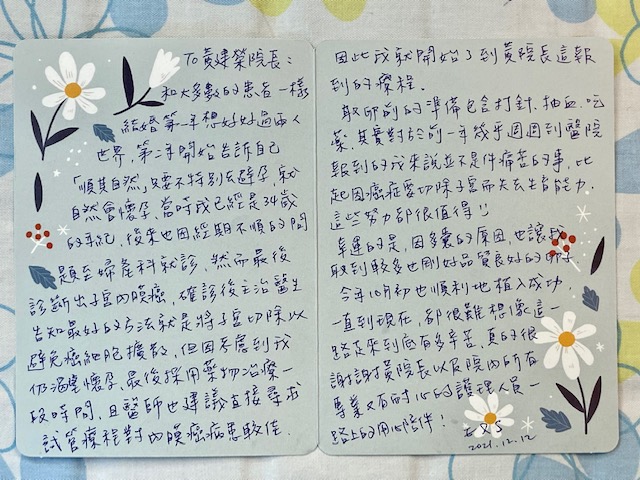 To 黃建榮院長：
和大多數的患者一樣
結婚第一年想好好過兩人
世界，第二年開始告訴自己
「順其自然」只要不特別去避孕，就
自然會懷孕，當時我已經是34歲
的年紀，後來也因經期不順的問
題至婦產科就診，然而最後
診斷出子宮內膜癌，確診後主治醫生
告知最好的方法就是將子宮切除以
避免癌細胞擴散，但因考慮到我
仍渴望懷孕，最後採用藥物治療一
段時間，且醫師也建議直接尋求
試管療程對內膜癌病患較佳．
因此我就開始了到黃院長這報
到的療程．
取卵前的準備包含打針．抽血．吃
藥，其實對於前一年幾乎週週到醫院
報到的我來說並不是件痛苦的事，比
起因癌症要切除子宮而失去生育能力．
這些努力都很值得！！
幸運的是，因多囊的原因，也讓我
取到較多也剛好品質良好的卵子
今年10月初也順利地植入成功．
一直到現在，都很難想像這一
路走來到底有多辛苦，真的很
謝謝黃院長以及院內所有
專業又有耐心的護理人員一
路上的用心陪伴！
2021.12.12